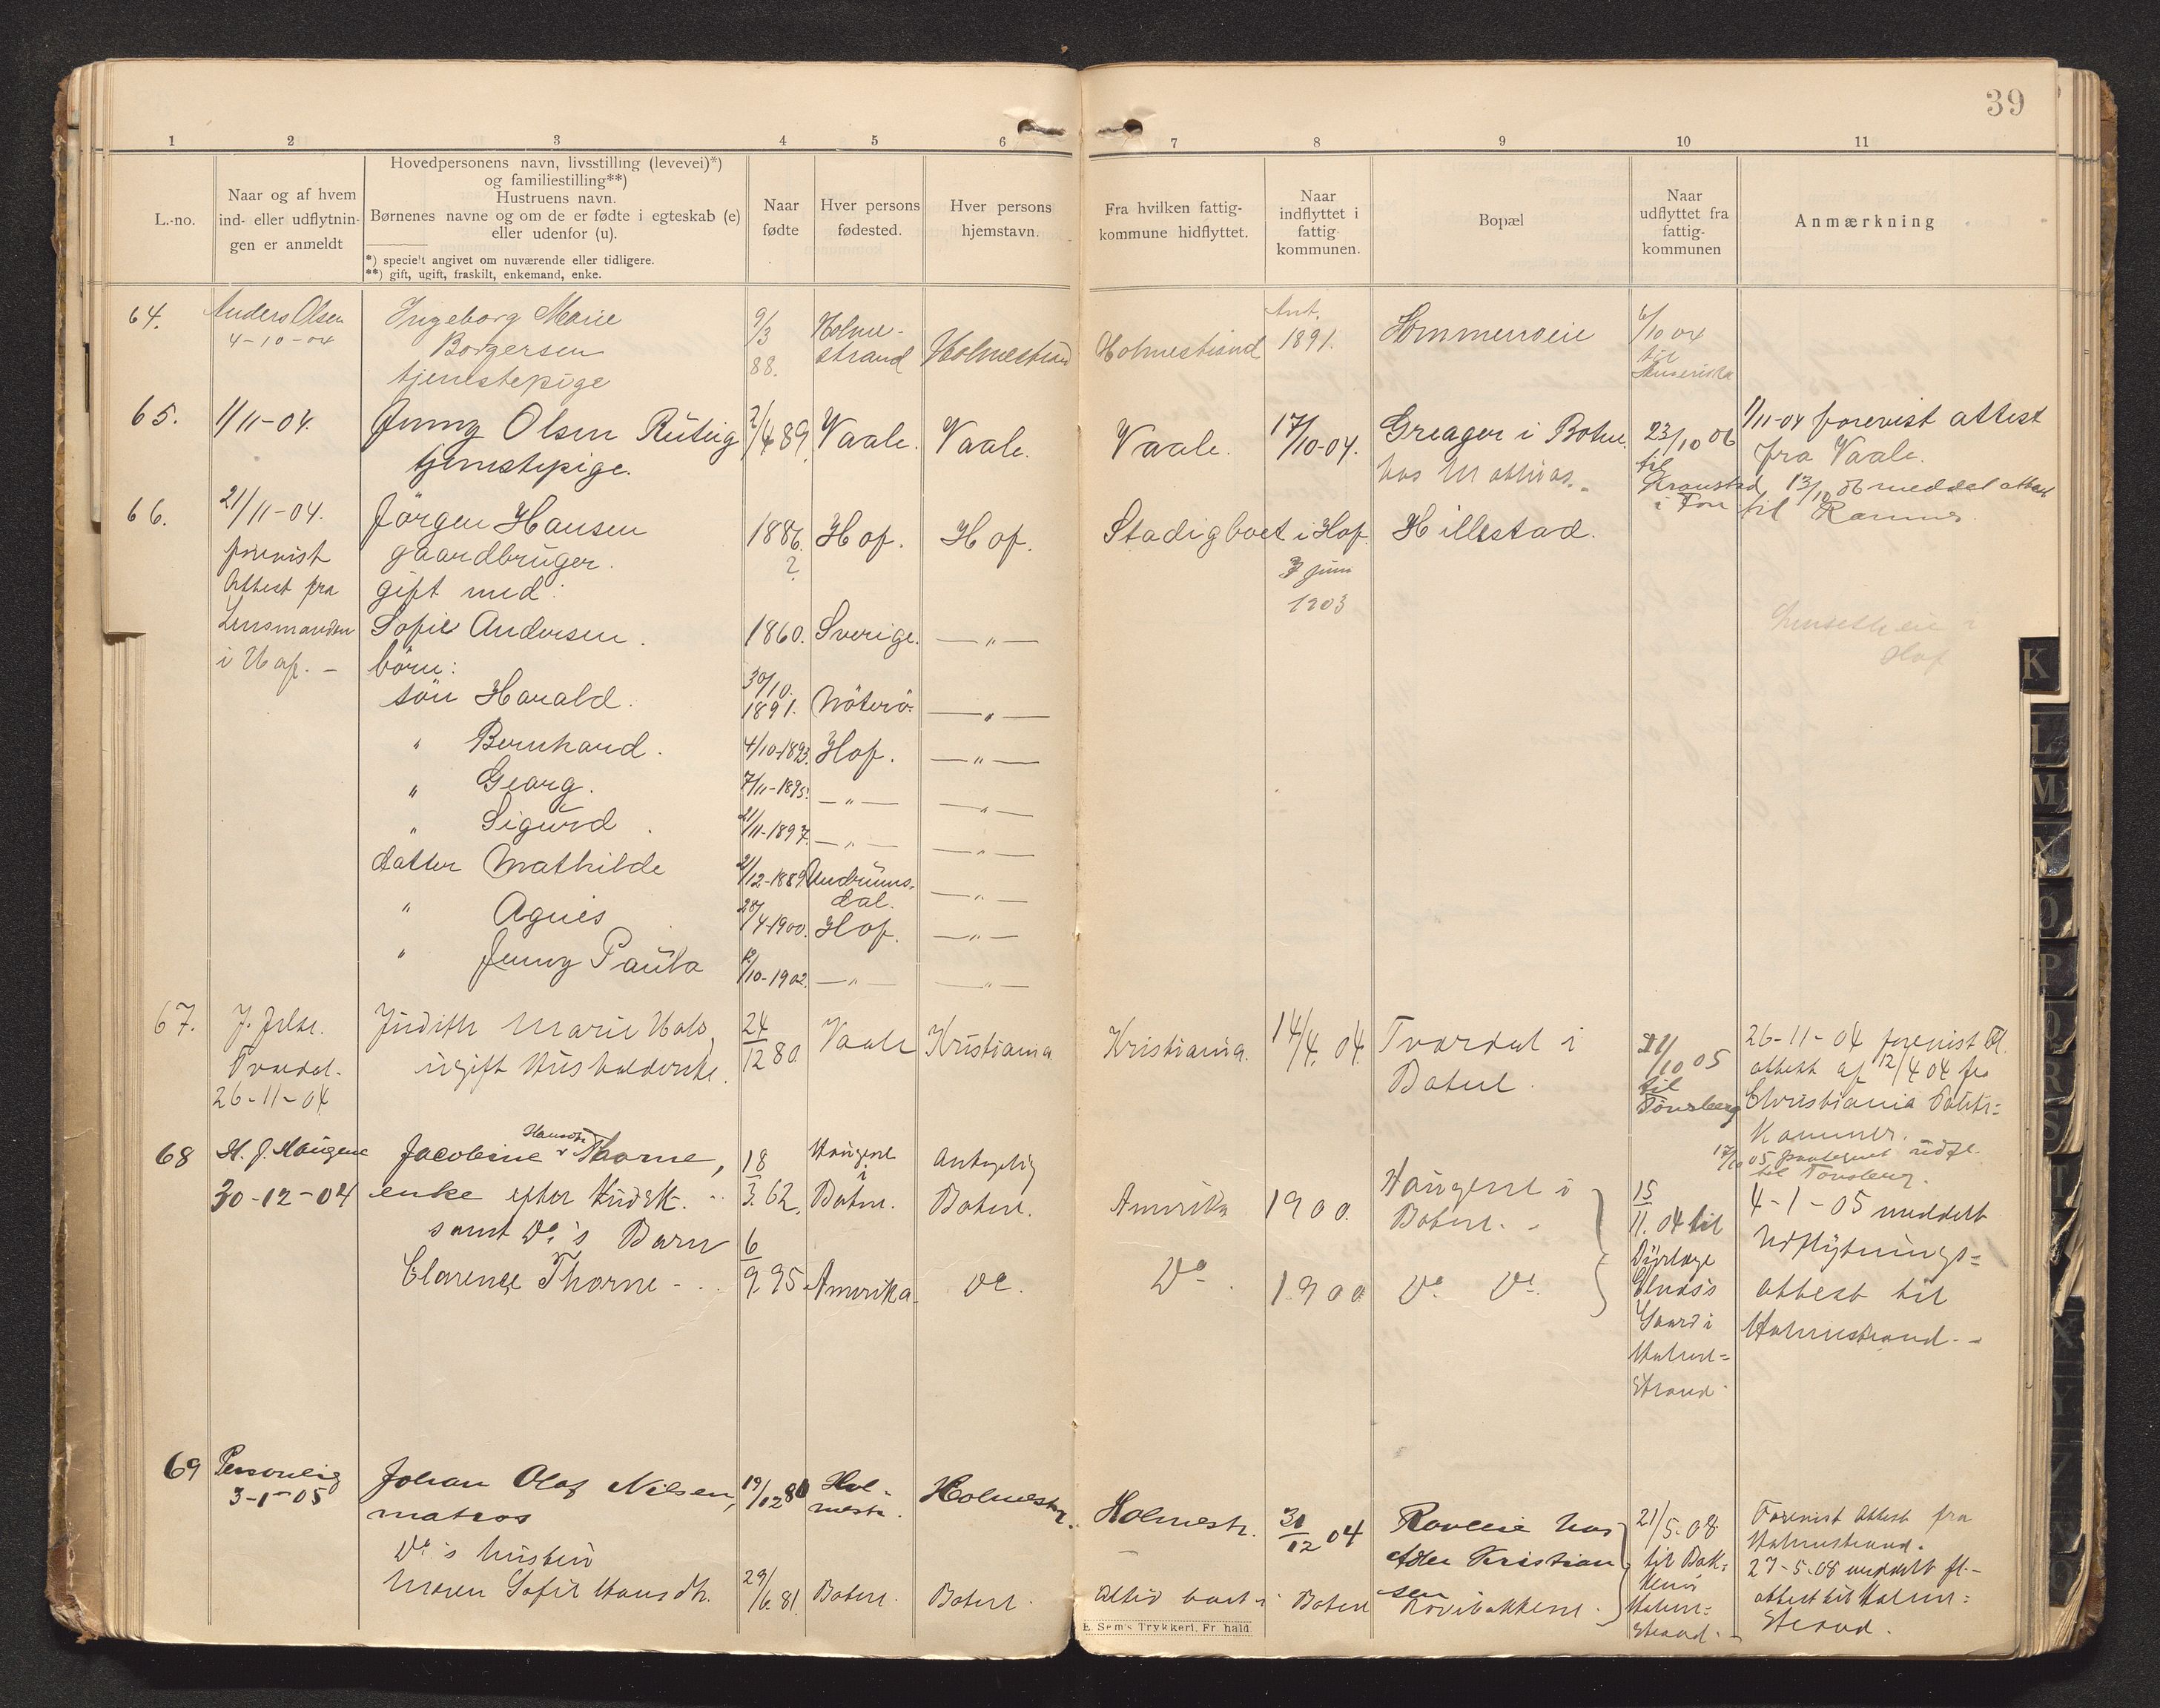 39
1 2 3 4 5 6 7 8 9 10 11
L.-no.
Naar og af hvem
ind- eller udflytnin-
gen er anmeldt
Hovedpersonens navn, livsstilling (levevei)*)
og familiestilling**)
Hustruens navn.
Børnenes navne og om de er fødte i egteskab (e)
eller udenfor (u).
*) specielt angivet om nuværende eller tidligere.
**) gift, ugift, fraskilt, enkemand, enke.
Naar
fødte
Hver persons
fødested.
Hver persons
hjemstavn.
Fra hvilken fattig-
kommune hidflyttet.
Naar
indflyttet i
fattig-
kommunen.
Bopæl
Naar
udflyttet fra
fattig-
kommunen
Anmærkning
64.
Anders Olsen
4-10-04
Ingeborg Marie
Borgersen
tjenestepige
9/3
88.
Holme-
strand
Holmestrand
Holmestrand
Ant.
1891.
Sommerroeie
6/10 04
til
Amerika
65.
1/11-04.
Jenny Olsen Rutig
tjenstepige.
2/4 89
Vaale.
Vaale.
Vaale.
17/10-04.
Greager i Botne.
hos Mathias.
23/10 06
til
Kronstad
i Fon
1/11-04 forevist attest
fra Vaale.
13/10 06 meddel attest
til Ramnes
66.
21/11-04.
forevist
Attest fra
Lensmanden
i Hof. -
Jörgen Hansen
gaardbruger.
gift med:
Sofie Andersen.
börn:
sön Harald.
" Bernhard.
" Georg.
" Sigurd.
datter Mathilde
" Agnes
" Jenny Paula
1886.
?
1860.
30/10.
1891.
4/10-1893.
7/11-1895.
21/11-1897.
21/12-1889
28/4-1900.
12/10-1902.
Hof.
Sverige.
Nöterö
Hof.
— " —
— " —
Undrums-
dal.
Hof.
— " —
Hof.
— " —
— " —
— " —
— " —
— " —
— " —
— " —
— " —
Stadig boet i Hof.
3 juni
1903
Hillestad.
Hof
67.
J. Jelse.
Tverdal.
26-11-04
Judith Marie Hals,
ugift Husholderske.
24/12 80
Vaale
Kristiania
Kristiania.
14/4. 04.
Tverdal i
Botne.
21/10 05
til
Tönsberg
26-11-04 forevist Fl.
attest af 12/4 04 fra
Christiania Politi=
Kammer.
17/10 05 paategnet udfl.
til Tonsberg.
68
H. J. Haugene
30-12-04
Jacobine Hansdtr Thorne,
enke efter Hudsk.
samt Do.'s Barn
Clarence Thorne - . .
18/3. 62.
6/9. 95
Haugene
i
Botne.
Amerika.
Antagelig
Botne.
Do.
Amerika
Do.
1900.
1900
Haugene i
Botne. -
Do. Do.
15/11. 04 til
Dyrlæge
Gaard i
Holme=
strand.
4-1-05 meddelt
Udflytnings=
attest til
Holmestrand. -
69
Personlig
3-1-05
Johan Olaf Nilsen,
matros
Do.'s hustru
Maren Sofie Hansdtr.
19/12 80
29/6. 81.
Hol-
mestr.
Botne.
Holmestr.
Botne.
Holmestr.
Altid boet i Botne
31/12 04
Raveie hos
Adler Kristian
sen
Rövebakkene.
21/5. 08
til Bak=
keni
Holme=
strand. -
Forevist Attest fra
Holmestrand.
27-5-08 meddelt fl.-
attest til Holme=
strand.
E. Sem's Trykkeri, Fr.hald.
K
L
M
N
O
P
Q
R
S
T
X
Y